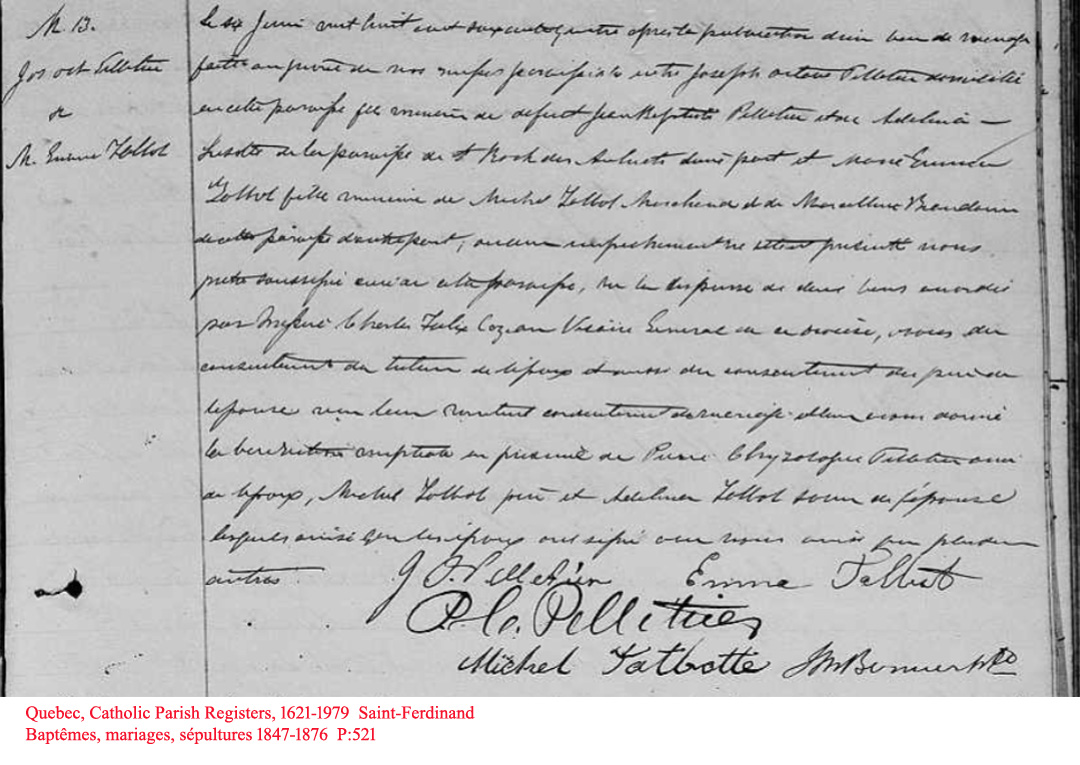 M. 13.
Jos Oct Pelletier
&
M. Emma Talbot
Le six Juin mil huit cent soixante quatre après la publication d'un ban de mariage
faite au prone de nos messes paroissiales entre Joseph Octave Pelletier domicilié
en cette paroisse fils mineur de defunt Jean Baptiste Pelletier et de Adelina
de la paroisse de St Roch des Aulnets d'une part et Marie Emma
Talbot fille mineure de Michel Talbot Marchand et de Marcelline
de cette paroisse d'autre part, aucun empechement ne etant présenté nous
pretre soussigné curé de cette paroisse, vu la dispense de deux bans accordée
par Messire Charles Felix Cazeau Vicaire General de ce diocèse, avec du
consentement du tuteur de l'époux et aussi du consentement du père de
l'épouse leur mutuel consentement de mariage et leur avons donné
la bénédiction nuptiale en présence de Pierre Chryzologue Pelletier ami
de l'époux, Michel Talbot père et Adelina Talbot soeur de l'épouse
lesquels ainsi que les époux ont signé avec nous ainsi que plusieurs
autres
J O. Pelletier Emma Talbot
P. C. Pelletier
Michel Talbotte Bernier Ptre
Quebec, Catholic Parish Registers, 1621-1979 Saint-Ferdinand
Baptêmes, mariages, sépultures 1847-1876 P:521